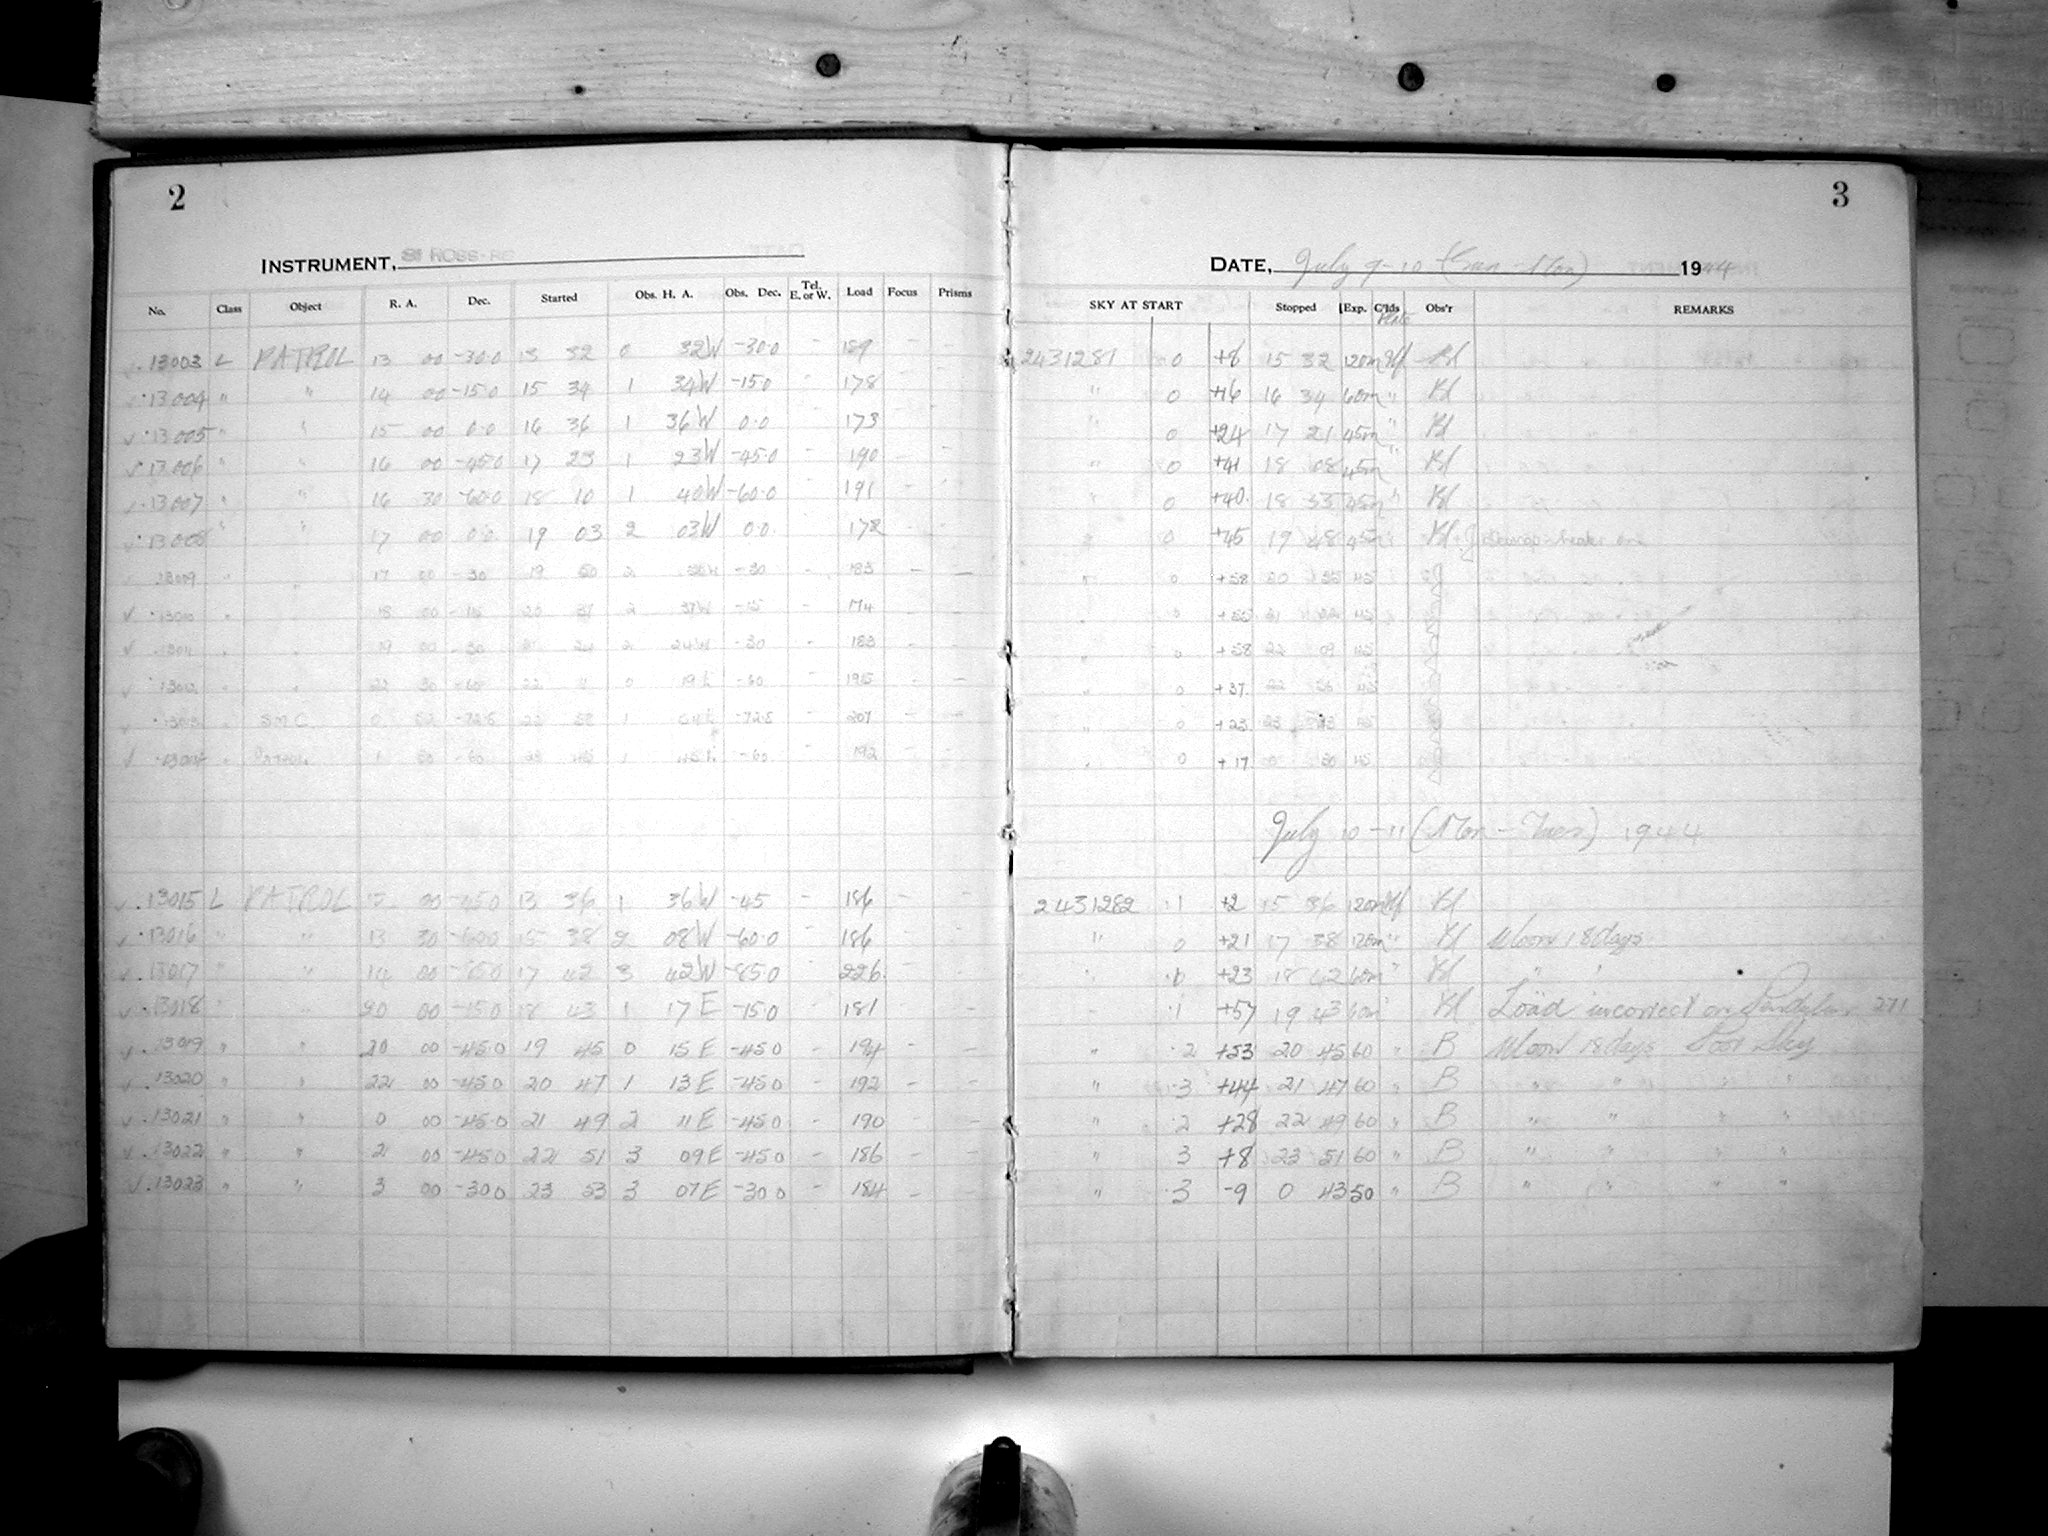 2
INSTRUMENT,
No. Class Object R. A. Dec. Started Obs. H. A. Obs. Dec. Tel. E. or W. Load Focus Prisms
13003 L PATROL 13 00 -30.0 13 32 0 32W -30.0 - 189 - -
13004 " " 14 00 -15.0 15 34 1 34W -15.0 - 178 - -
13005 " " 15 00 0.0 16 36 1 36W 0.0 - 173 - -
13006 " " 16 00 -45.0 17 23 1 23W -45.0 - 190 - -
13007 " " 16 30 -60.0 18 10 1 40W -60.0 - 191 - -
13008 " " 17 00 0.0 19 03 2 03W 0.0 - 172 - -
13009 " " 17 -30 19 50 2 -30 - 183 - -
13010 " " 18 00 -15 20 37 2 37W -15 - 174 - -
13011 " " 19 00 -30 21 24 2 24W -30 - 183 - -
13012 " " 22 30 -60 22 11 0 19E -60 - 195 - -
13013 " SMC 0 52 -72.8 22 58 1 -72.8 - 207 - -
13014 " PATROL 1 -60 23 45 1 -60 - 192 - -
13015 L PATROL 12 00 -45.0 13 36 1 36W -45 - 186 - -
13016 " " 13 30 -60.0 15 38 2 08W -60.0 - 186 - -
13017 " " 14 00 -85.0 17 42 3 42W -85.0 - 226 - -
13018 " " 20 00 -15.0 18 43 1 17E -15.0 - 181 - -
13019 " " 20 00 -45.0 19 45 0 15E -45.0 - 194 - -
13020 " " 22 00 -45.0 20 47 1 13E -45.0 - 192 - -
13021 " " 0 00 -45.0 21 49 2 11E -45.0 - 190 - -
13022 " " 2 00 -45.0 22 51 3 09E -45.0 - 186 - -
13023 " " 3 00 -30.0 23 53 3 07E -30.0 - 184 - -
3
DATE, July 9-10 (Sun - Mon) 1944
SKY AT START Stopped Exp. C'lds Plate Obs'r REMARKS
2431281 0 +8 15 32 120m Bl
" 0 +16 16 34 60m " Bl
" 0 +24 17 21 45m " Bl
" 0 +41 18 08 45m " Bl
" 0 +40 18 55 45m " Bl
" 0 +45 19 48 45m " Bl + J
" 0 +58 20 35 45 J
" 0 21 22 45 J
" 0 +58 22 09 45 J
" 0 +37 22 56 45 J
" 0 +23 23 43 45 J
" 0 +17 0 30 45 J
July 10-11 (Mon - Tues) 1944
2431282 .1 +2 15 36 120m Bl
" 0 +21 17 38 120m " Bl Moon 18 days
" +23 18 42 60m " Bl " "
- .1 +57 19 43 60m " Bl Load incorrect on 271
" .2 +53 20 45 60 " B Moon 18 days Poor Sky
" .3 +44 21 47 60 " B " " " "
" .2 +28 22 49 60 " B " " " "
" 3 +8 23 51 60 " B " " " "
" .3 -9 0 43 50 " B " " " "